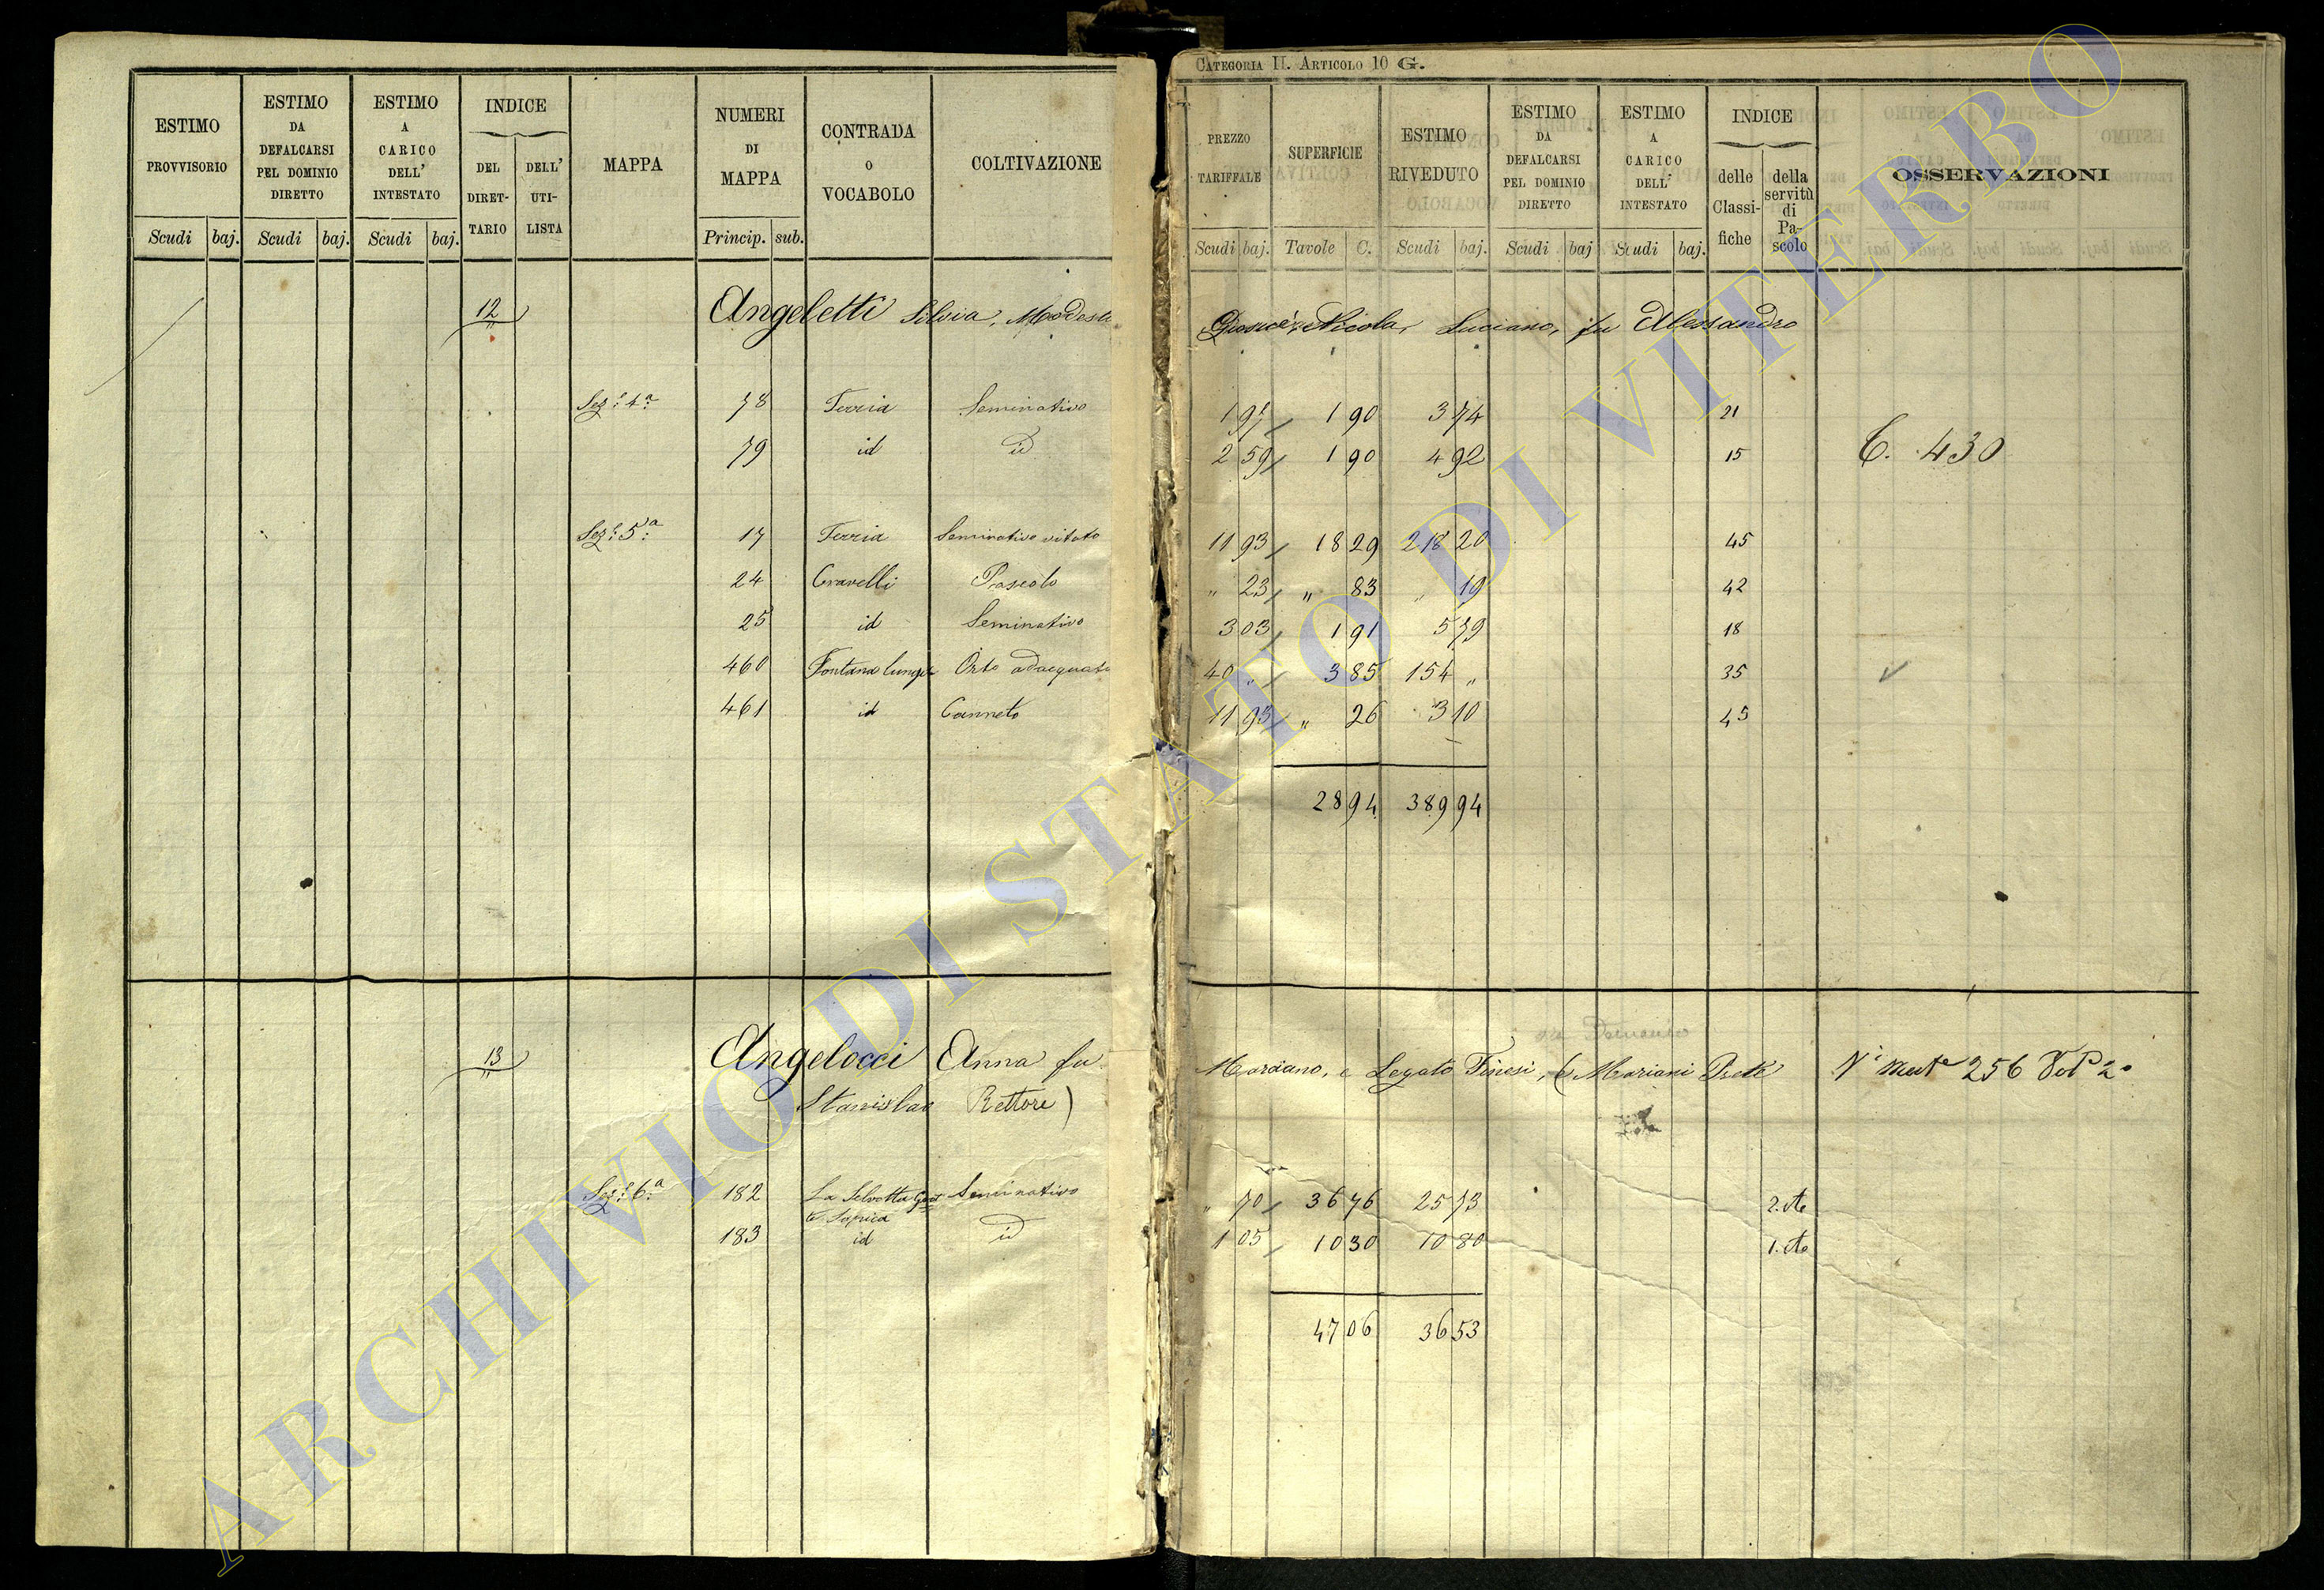 CATEGORIA II. ARTICOLO 10 G.
ESTIMO PROVVISORIO Scudi baj.
ESTIMO DA DEFALCARSI PEL DOMINIO DIRETTO Scudi baj.
ESTIMO A CARICO DELL' INTESTATO Scudi baj.
INDICE DEL DIRET- TARIO DELL' UTI- LISTA
MAPPA
NUMERI DI MAPPA Princip. sub.
CONTRADA O VOCABOLO
COLTIVAZIONE
PREZZO TARIFFALE Scudi baj.
SUPERFICIE Tavole C.
ESTIMO RIVEDUTO Scudi baj.
ESTIMO DA DEFALCARSI PEL DOMINIO DIRETTO Scudi baj
ESTIMO A CARICO DELL' INTESTATO Scudi baj.
INDICE delle Classi- fiche della servitù di Pa- scolo
OSSERVAZIONI
12 Angeletti Silvia, Modesta Giosuè, Nicola, Luciano, fu Alessandro
Sez.e 4.a 78 Terria Seminativo 1 97 1 90 3 74 21
79 id id 2 59 1 90 4 92 15 C. 430
Sez.e 5.a 17 Terria Seminativo vitato 11 93 18 29 218 20 45
24 Gravelli Pascolo " 23 " 83 " 19 42
25 id Seminativo 3 03 1 91 5 79 18
460 Fontana lunga Orto adacquato 40 " 3 85 154 " 35
461 id Canneto 11 93 " 26 3 10 45
28 94 389 94
13 Angelocci Anna fu Marciano, e Legato Finesi, (Mariani Prete N° Mut.e 256 Vol.e 2°
Stanislao Rettore)
Sez.e 6.a 182 La Selvotta Seminativo " 70 36 76 25 73 2.
183 id id 1 05 10 30 10 80 1.
47 06 36 53
ARCHIVIO DI STATO DI VITERBO